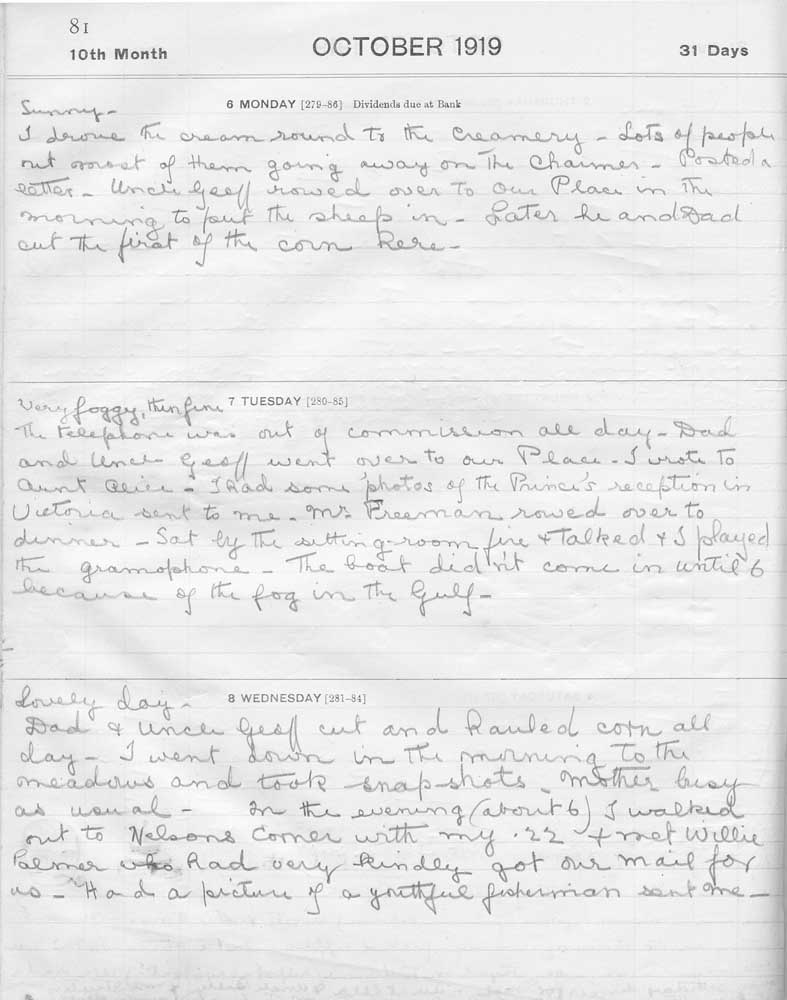 81
10th Month
OCTOBER 1919
31 Days
6 MONDAY [279-86] Dividends due at Bank
Sunny -
I drove the cream round to the Creamery - Lots of people
out most of them going away on The Charmer - Posted a
letter - Uncle Geoff rowed over to our Place in the
morning to put the sheep in - Later he and Dad
cut the first of the corn here -
7 TUESDAY [280-85]
Very foggy, then fine
The telephone was out of commission all day - Dad
and Uncle Geoff went over to our Place - I wrote to
Aunt Alice - I had some photos of the Prince's reception in
Victoria sent to me. Mr. Freeman rowed over to
dinner - Sat by the sitting-room fire & talked & I played
the gramophone - The boat did'nt come in until 6
because of the fog in the Gulf -
8 WEDNESDAY [281-84]
Lovely day -
Dad & Uncle Geoff cut and hauled corn all
day - I went down in the morning to the
meadows and took snap-shots. Mother busy
as usual - In the evening (about 6) I walked
out to Nelsons Corner with my .22 & met Willie
Palmer who had very kindly got our mail for
us - Had a picture of a youthful fisherman sent me -